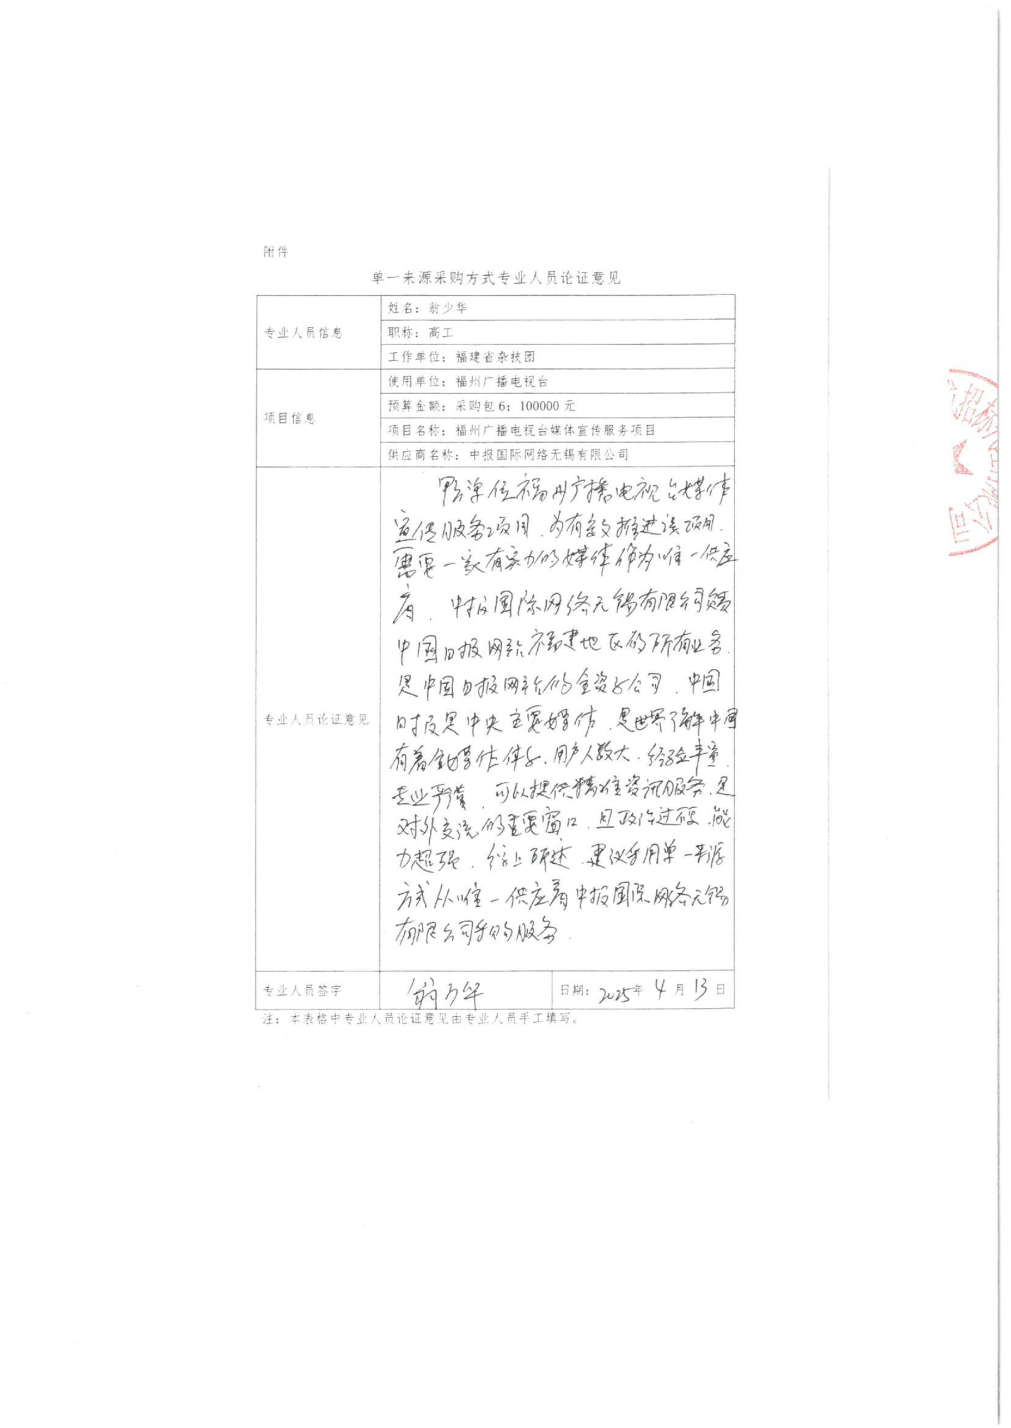 附件
单一来源采购方式专业人员论证意见
专业人员信息
姓名：翁少华
职称：高工
工作单位：福建省杂技团
项目信息
使用单位：福州广播电视台
预算金额：采购包 6：100000 元
项目名称：福州广播电视台媒体宣传服务项目
供应商名称：中报国际网络无锡有限公司
专业人员论证意见
单位福州广播电视台媒体
宣传服务项目，为有效推进该项目，
需要一家有实力的媒体作为唯一供应
商，中报国际网络无锡有限公司负责
中国日报网站福建地区的所有业务，
是中国日报网站的全资子公司，中国
日报是中央主要媒体，是世界了解中国
有着全媒体，用户人数大，经验丰富，
专业严谨，可以提供精准资讯服务，是
对外交流的重要窗口，且政治过硬，能
力超强，综上所述，建议采用单一来源
方式从唯一供应商中报国际网络无锡
有限公司采购服务。
专业人员签字
翁少华
日期：2025年 4 月 13 日
注：本表格中专业人员论证意见由专业人员手工填写。
招标
有限公司